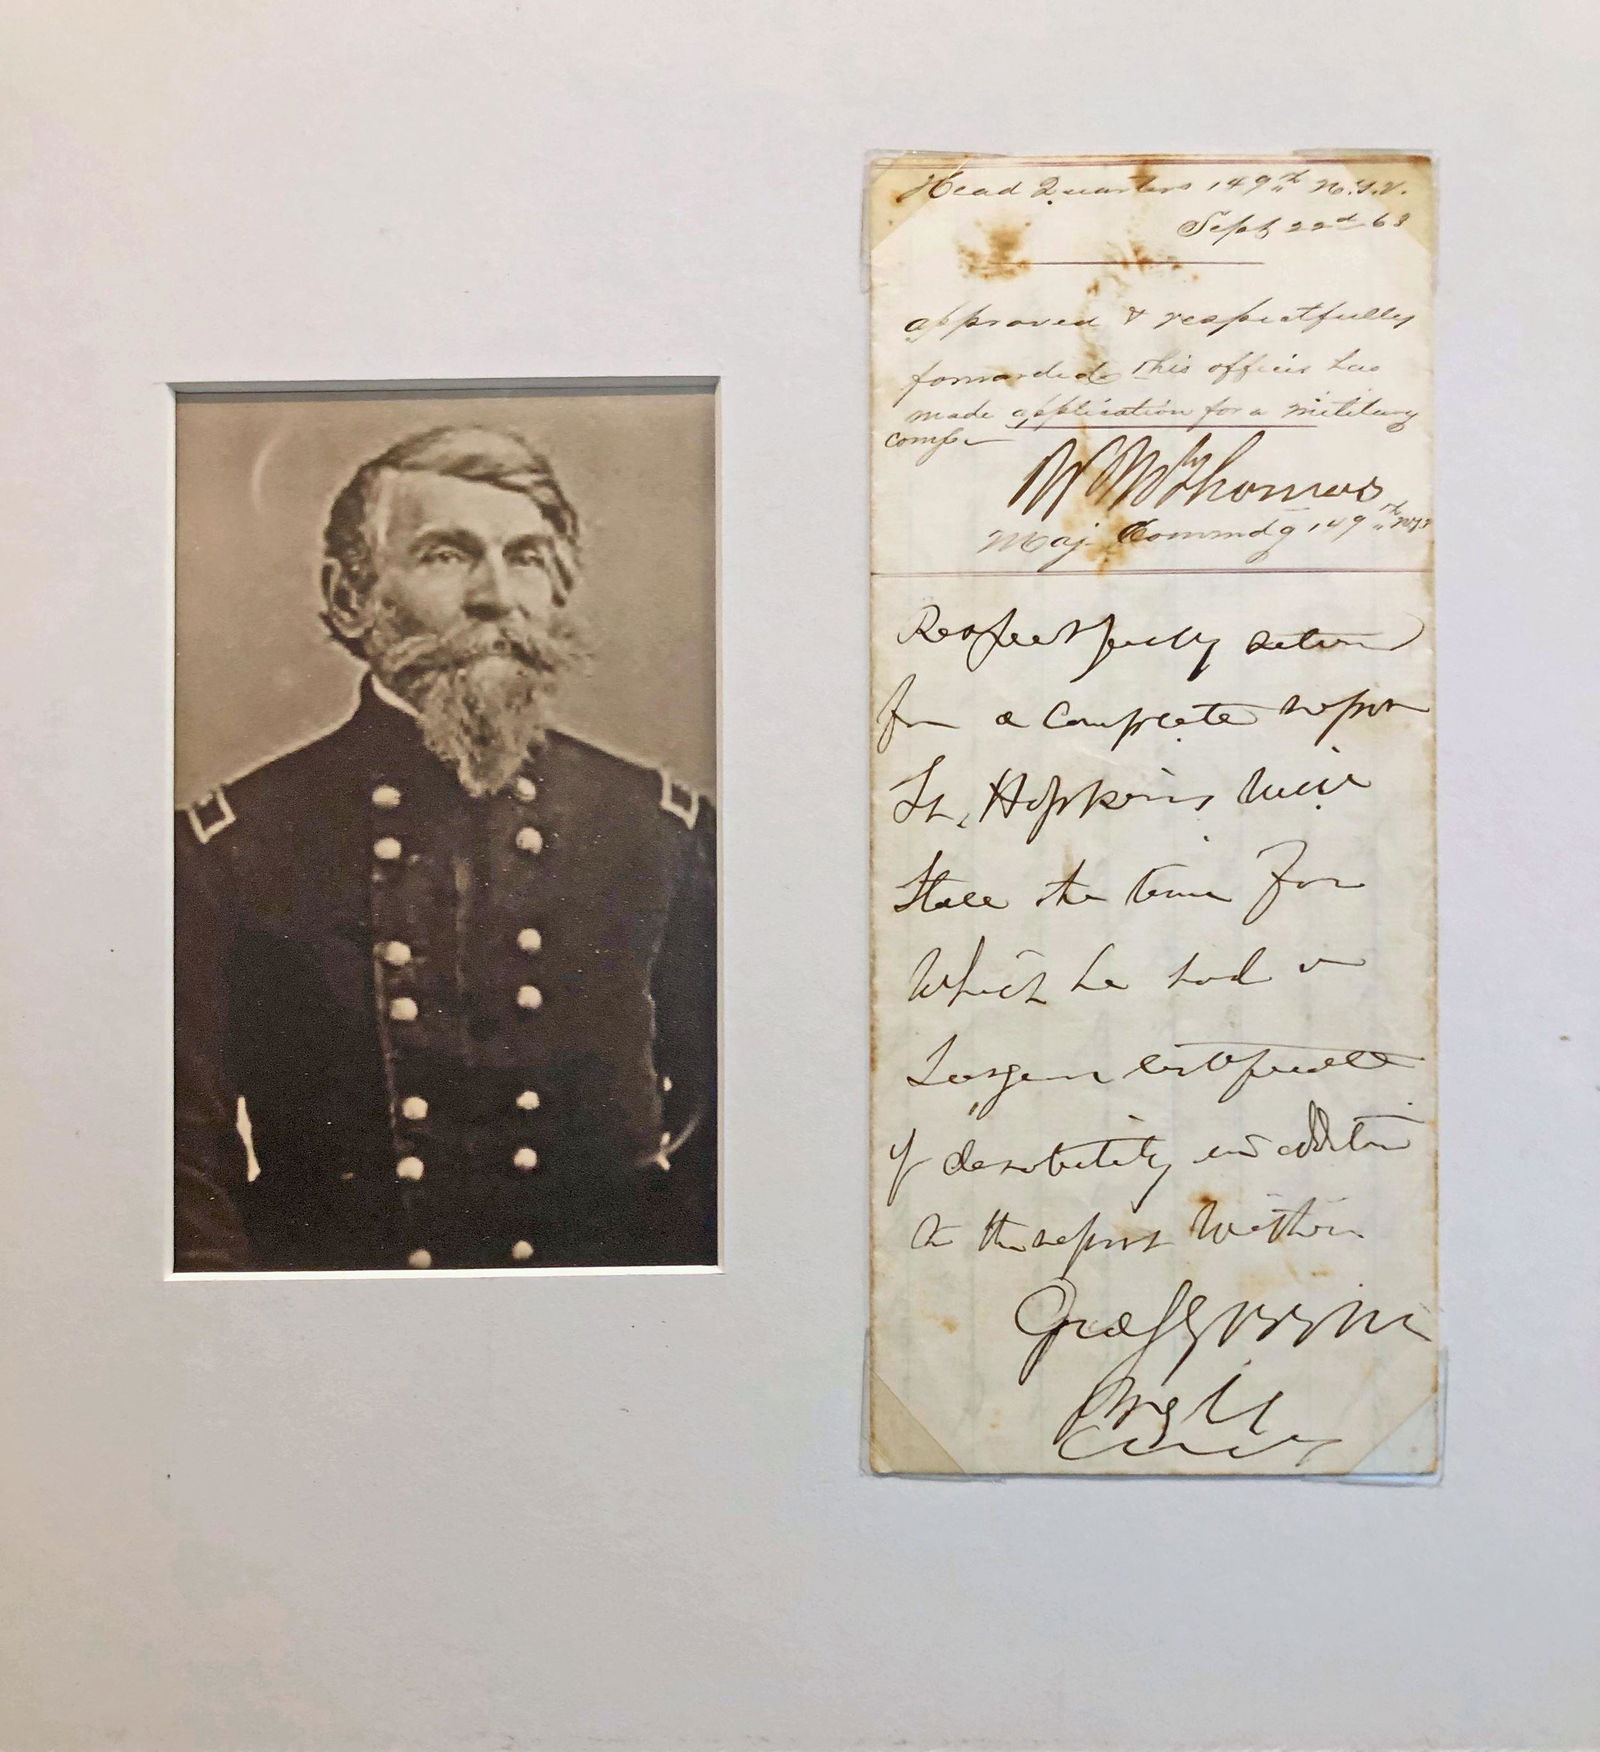 Head Quarters 149th N.Y.V.
Sept 22d 63
approved & respectfully
forwarded this officer has
made application for a military
comsn
Maj. Commdg 149th NYV
Respectfully return
for a complete report
Lt. Hopkins will
State the time for
Which he had a
Surgeon certificate
of desability in addition
to the report Within
Geo S Greene
Brig